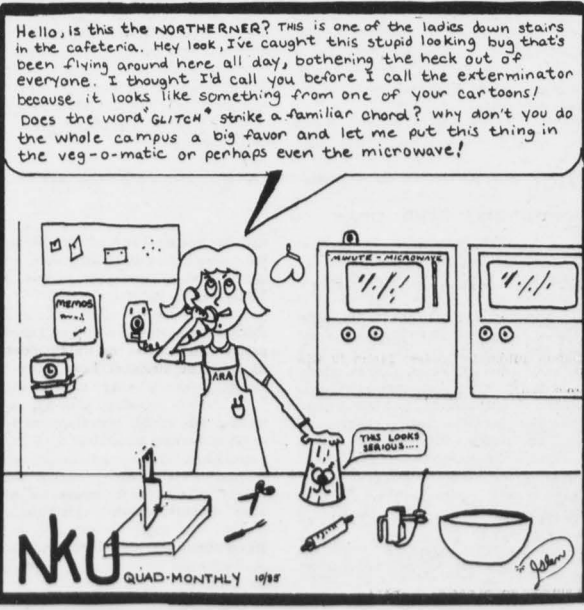 Hello, is this the NORTHERNER? THIS is one of the ladies down stairs
in the cafeteria. Hey look, I've caught this stupid looking bug that's
been flying around here all day, bothering the heck out of
everyone. I thought I'd call you before I call the exterminator
because it looks like something from one of your cartoons!
Does the word "GLITCH" strike a familiar chord? why don't you do
the whole campus a big favor and let me put this thing in
the veg-o-matic or perhaps even the microwave!
MINUTE-MICROWAVE
MEMOS
ARA
THIS LOOKS
SERIOUS....
NKU QUAD-MONTHLY 10/85